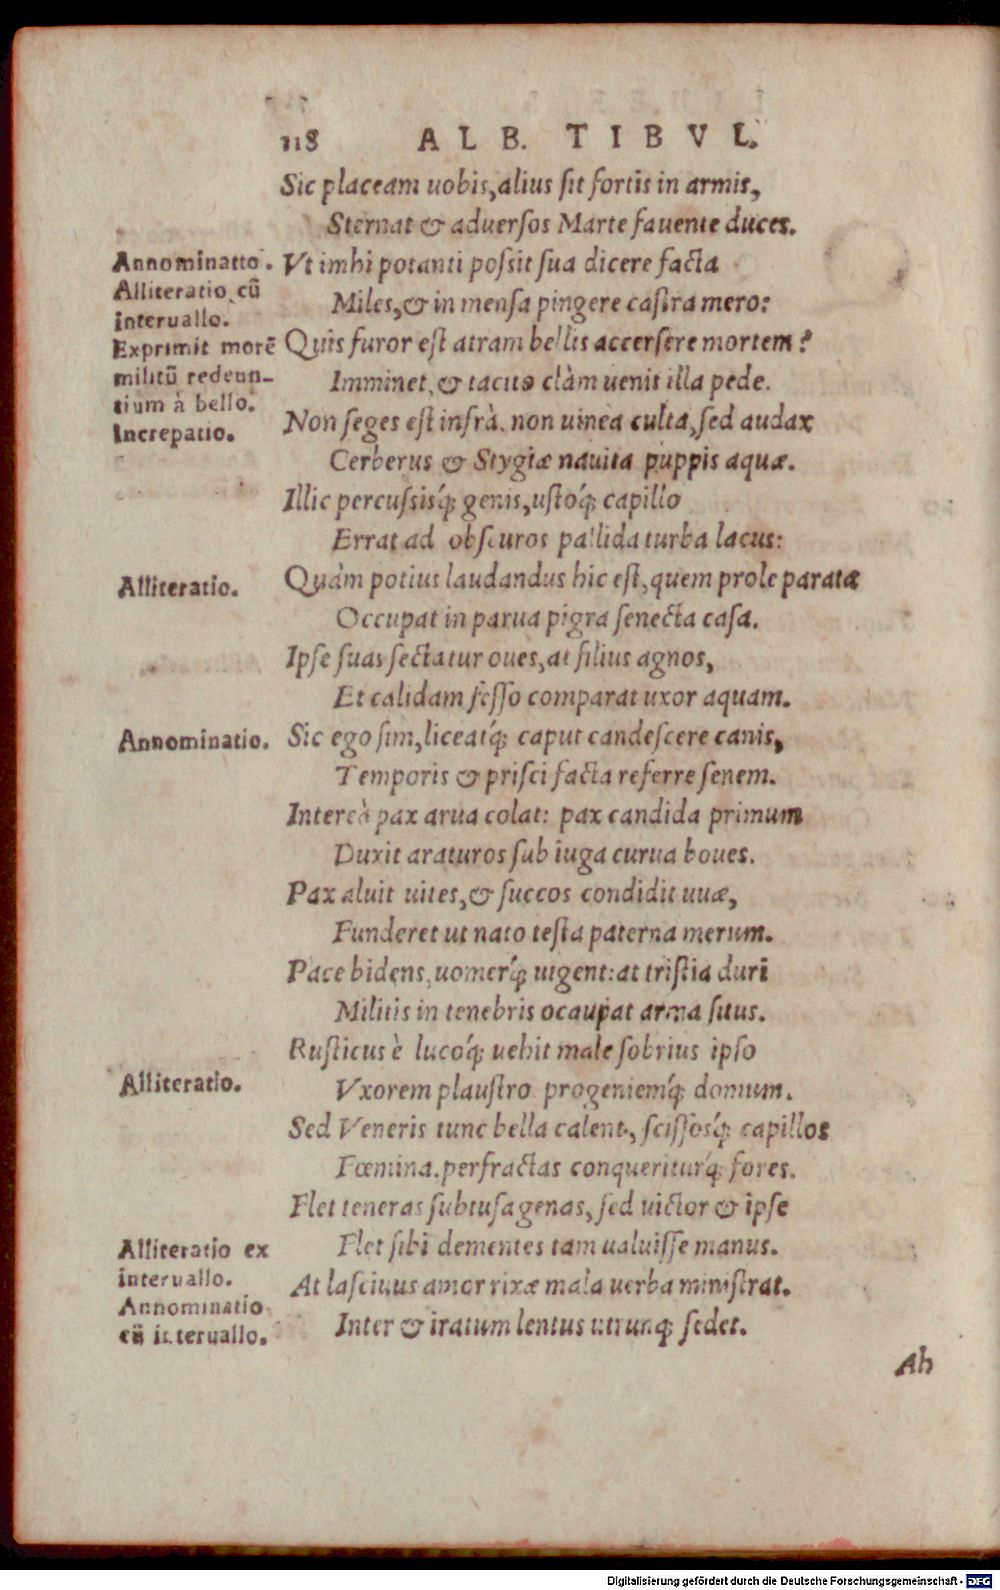 118 ALB. TIBVL.
Sic placeam uobis, alius sit fortis in armis,
Sternat & aduersos Marte fauente duces.
Annominatio. Vt imhi potanti possit sua dicere facta
Alliteratio cū
interuallo.
Miles, & in mensa pingere castra mero:
Exprimit morē
militū redeun-
tium à bello.
Increpatio.
Quis furor est atram bellis accersere mortem?
Imminet, & tacito clàm uenit illa pede.
Non seges est infrà, non uinea culta, sed audax
Cerberus & Stygiæ nauita puppis aquæ.
Illic percussisq́; genis, ustoq́; capillo
Errat ad obscuros pallida turba lacus:
Alliteratio. Quàm potius laudandus hic est, quem prole parata
Occupat in parua pigra senecta casa.
Ipse suas sectatur oues, at filius agnos,
Et calidam fesso comparat uxor aquam.
Annominatio. Sic ego sim, liceatq́; caput candescere canis,
Temporis & prisci facta referre senem.
Intereà pax arua colat: pax candida primum
Duxit araturos sub iuga curua boues.
Pax aluit uites, & succos condidit uuæ,
Funderet ut nato testa paterna merum.
Pace bidens, uomerq́; uigent: at tristia duri
Militis in tenebris occupat arma situs.
Rusticus è lucoq́; uehit male sobrius ipso
Alliteratio. Vxorem plaustro progeniemq́; domum.
Sed Veneris tunc bella calent, scissosq́; capillos
Fœmina, perfractas conqueriturq́; fores.
Flet teneras subtusa genas, sed uictor & ipse
Alliteratio ex
interuallo.
Flet sibi dementes tam ualuisse manus.
Annominatio
cū interuallo.
At lasciuus amor rixæ mala uerba ministrat.
Inter & iratum lentus utrunq; sedet.
Ah
Digitalisierung gefördert durch die Deutsche Forschungsgemeinschaft - DFG